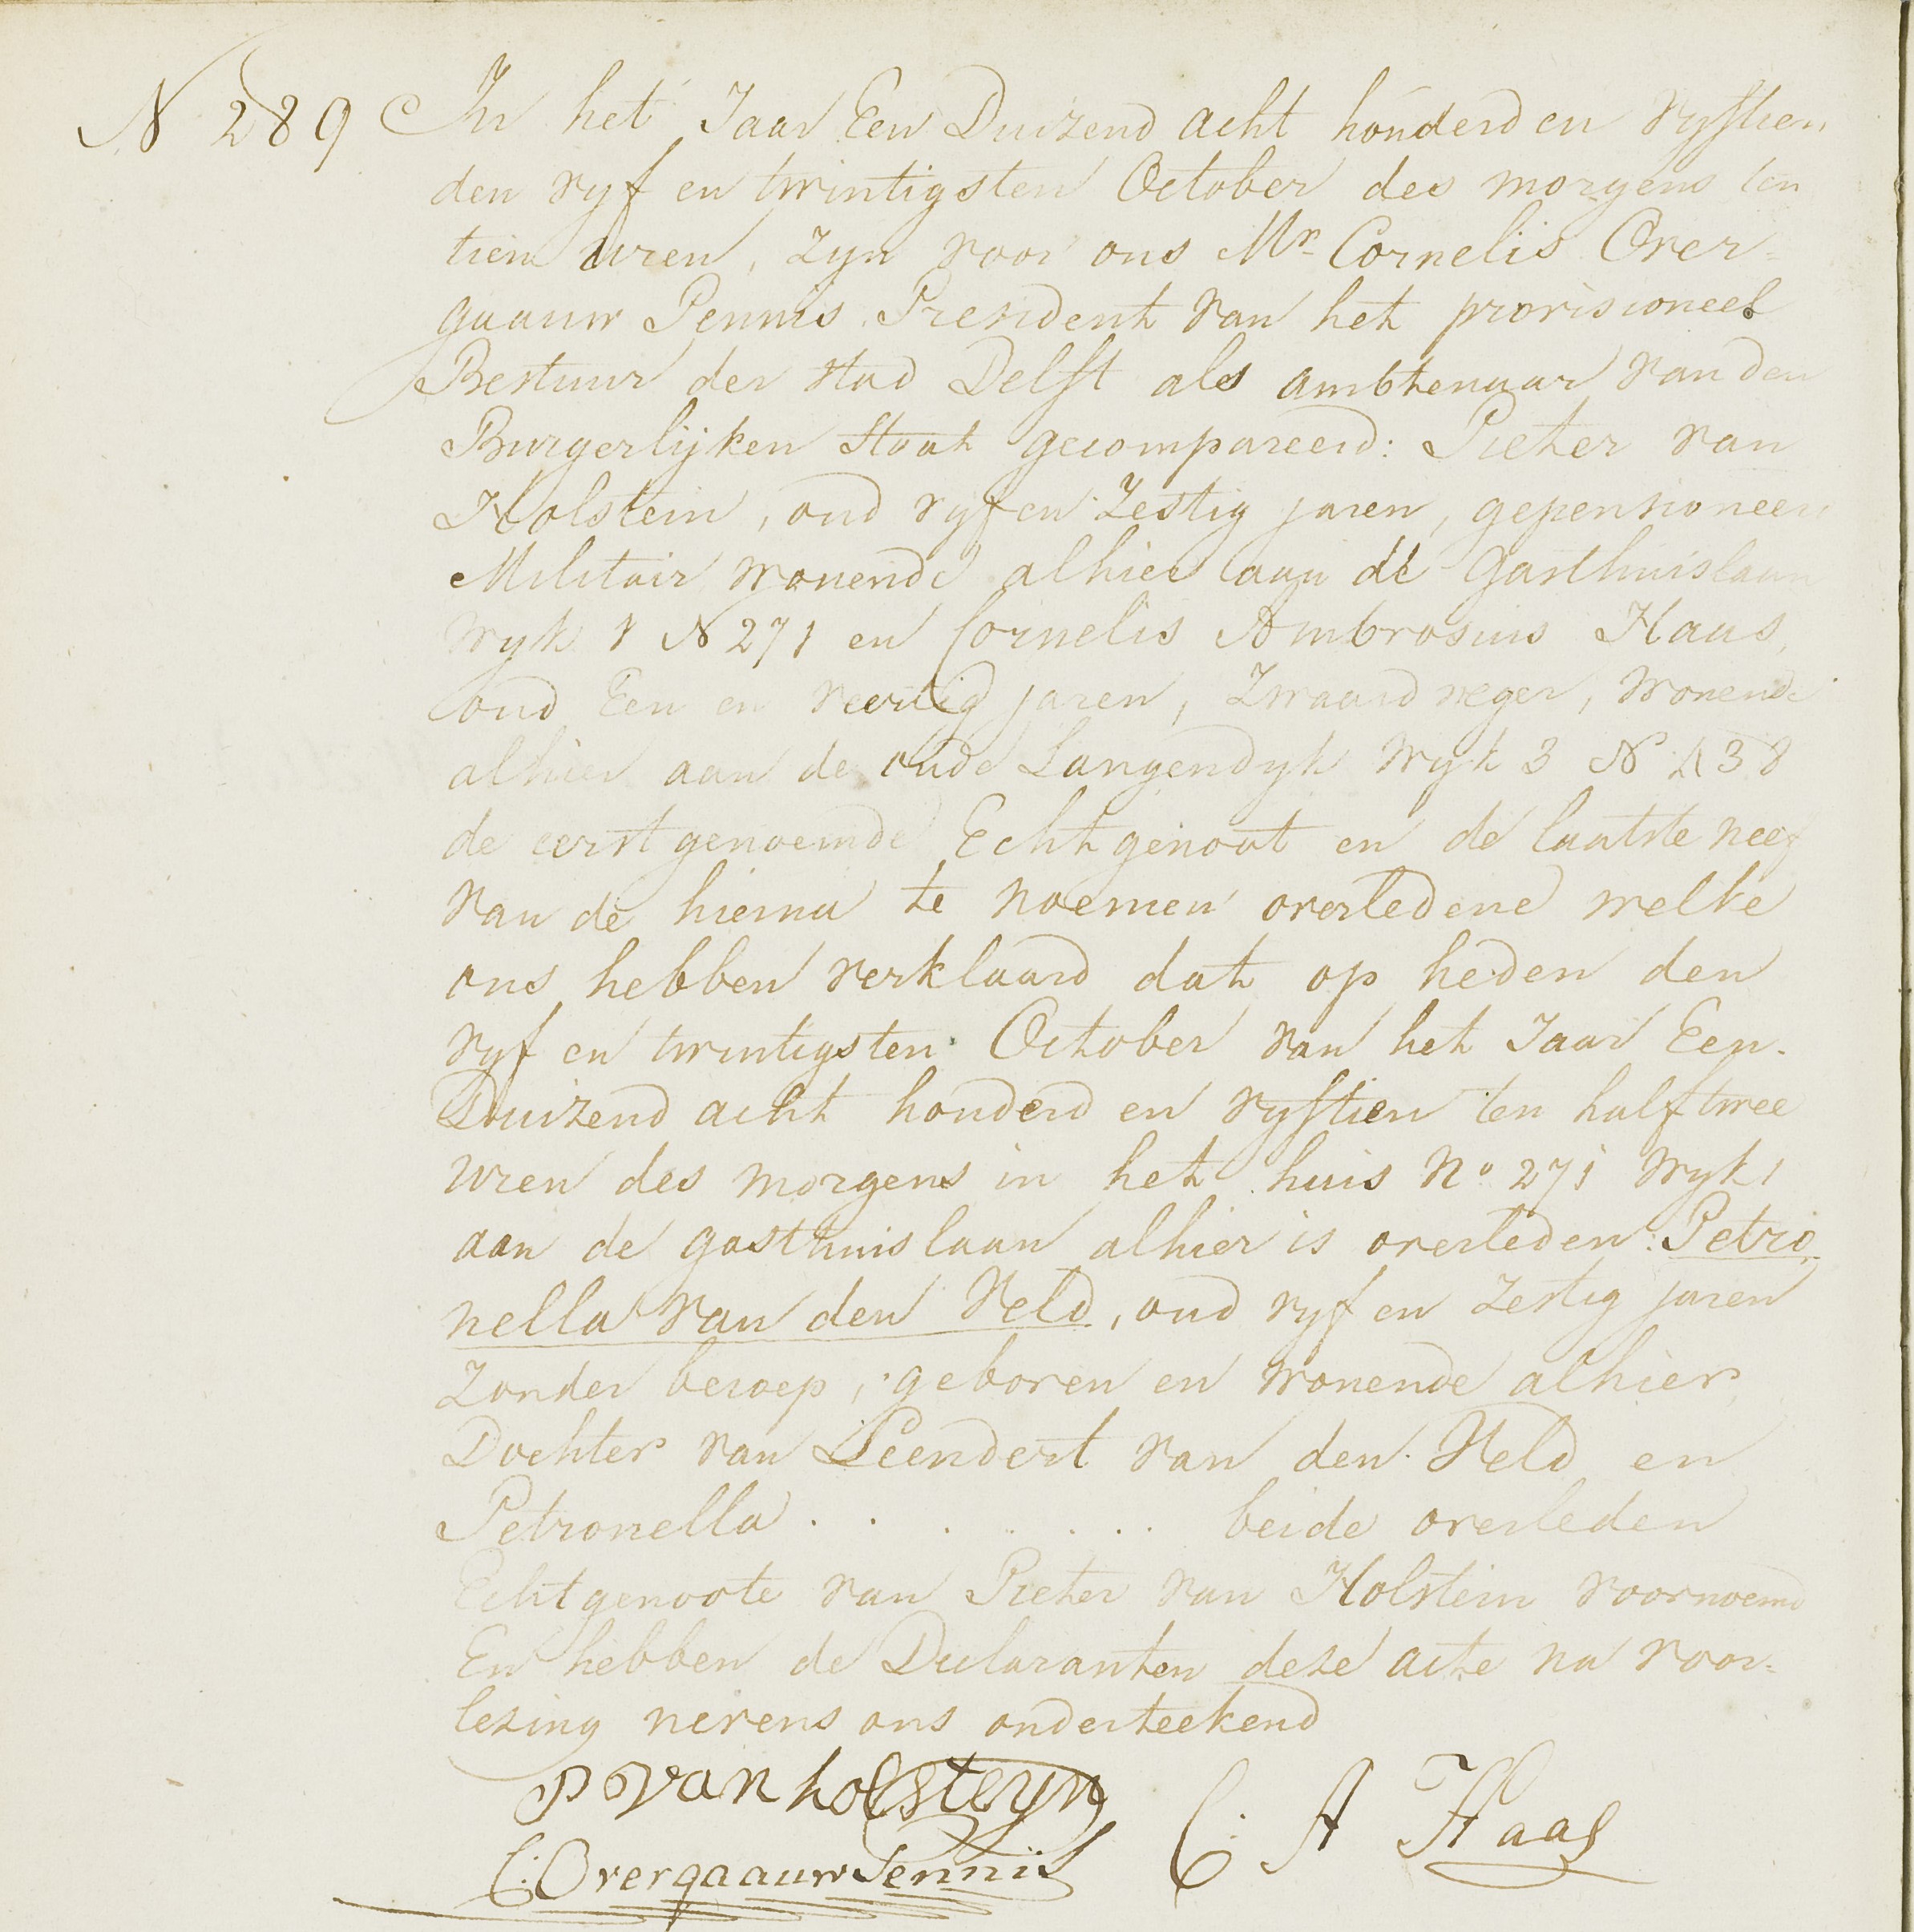 N 289 In het Jaar Een Duizend acht honderd en vyftien
den vyf en twintigsten October des morgens ten
tien uren, zyn voor ons Mr. Cornelis Over-
gaauw Pennis President van het provisioneel
Bestuur der stad Delft als ambtenaar van den
Burgerlijken Staat gecompareerd: Pieter van
Holstein, oud vyf en Zestig jaren, gepensioneerd
Militair wonende alhier aan de Gasthuislaan
Wyk 1 N 271 en Cornelis Ambrosius Haas,
oud Een en veertig jaren, Zwaardveger, wonende
alhier aan de oude Langendyk Wyk 3 N 438
de eerstgenoemde Echtgenoot en de laatste neef
van de hierna te noemen overledene welke
ons hebben verklaard dat op heden den
vyf en twintigsten October van het Jaar Een-
Duizend acht honderd en vyftien ten half twee
uren des morgens in het huis No 271 Wyk 1
aan de gasthuislaan alhier is overleden: Petro
nella van den Veld, oud vyf en Zestig jaren
Zonder beroep, geboren en wonende alhier
Dochter van Leendert van den Veld en
Petronella . . . . . . . . beide overleden
Echtgenoote van Pieter van Holstein voornoemd
En hebben de Declaranten deze acte na voor-
lezing nevens ons onderteekend
P van holsteyn
C: A Haas
C: Overgaauw Pennis